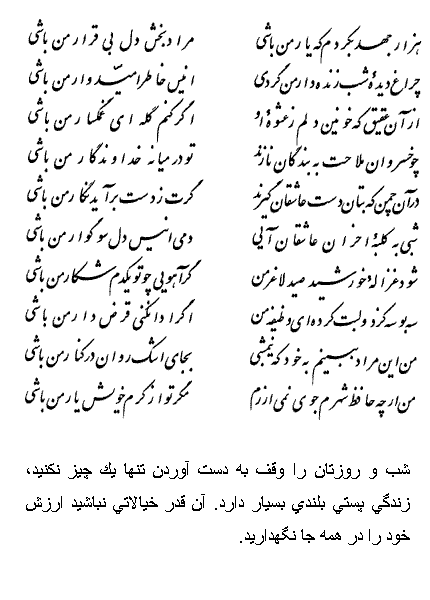 هزار جهد بكردم كه یار من باشی
مراد بخش دل بی قرار من باشی
چراغ دیدهٔ شب زنده دار من گردی
انیس خاطر امیّدوار من باشی
از آن عقیق كه خونین دلم ز عشوهٔ او
اگر كنم گله ای غمگسار من باشی
چو خسروان ملاحت به بندگان نازند
تو در میانه خداوندگار من باشی
در آن چمن كه بتان دست عاشقان گیرند
گرت ز دست برآید نگار من باشی
شبی به كلبهٔ احزان عاشقان آیی
دمی انیس دل سوگوار من باشی
شود غزالهٔ خورشید صید لاغر من
گر آهویی چو تو یكدم شكار من باشی
سه بوسه كز دو لبت كرده ای وظیفه من
اگر ادا نكنی قرض دار من باشی
من این مراد ببینم به خود كه نیمشبی
بجای اشك روان در كنار من باشی
من ار چه حافظ شهرم جوی نمی ارزم
مگر تو از كرم خویش یار من باشی
شب و روزتان را وقف به دست آوردن تنها يك چيز نكنيد،
زندگي پستي بلندي بسيار دارد. آن قدر خيالاتي نباشيد ارزش
خود را در همه جا نگهداريد.